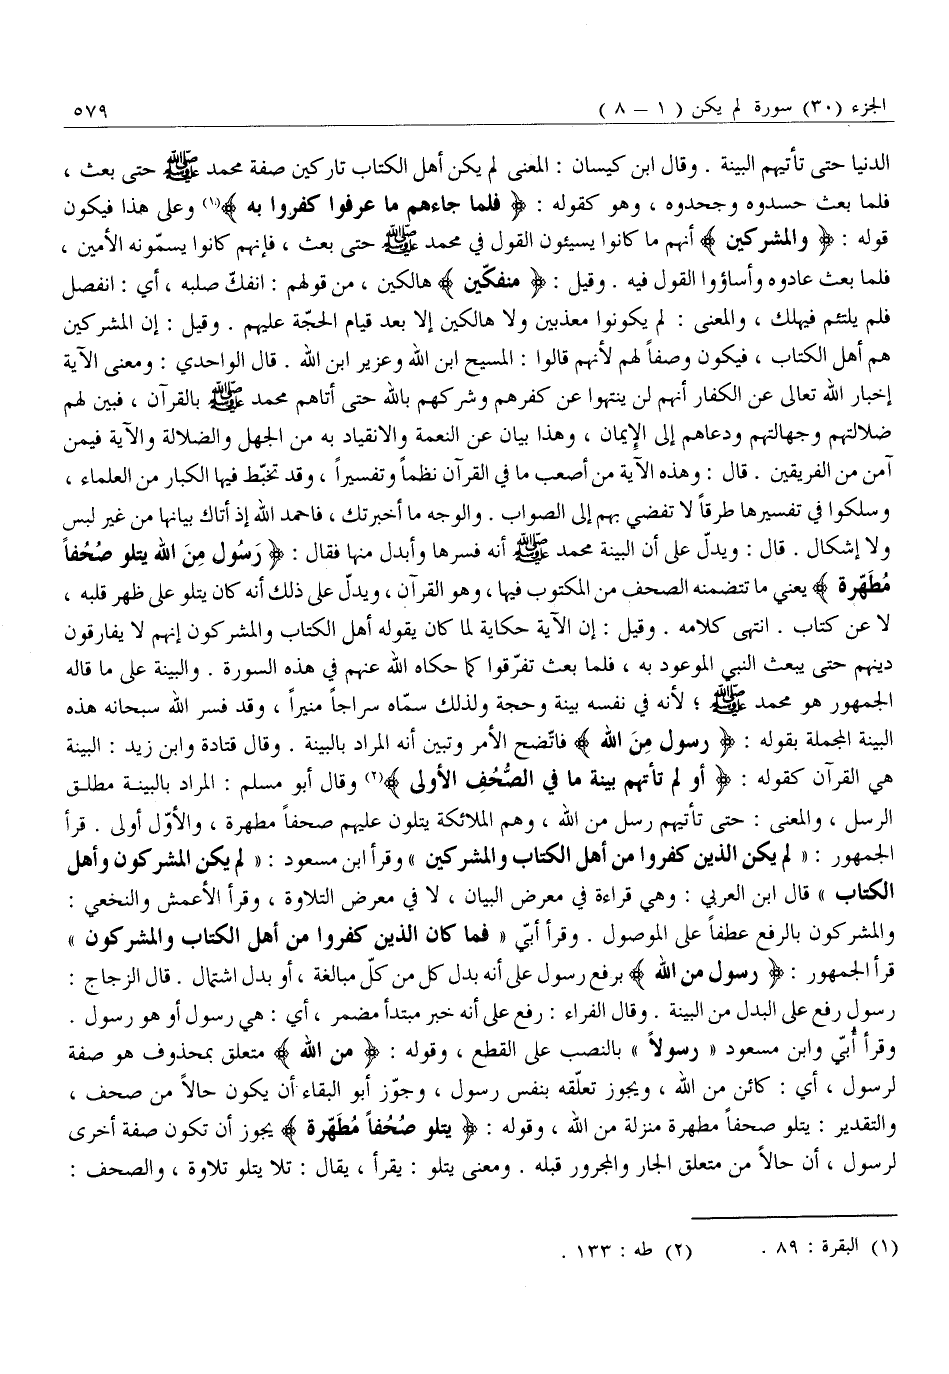 الجزء (٣٠) سورة لم يكن ( ١ – ٨ ) ٥٧٩
الدنيا حتى تأتيهم البينة . وقال ابن كيسان : المعنى لم يكن أهل الكتاب تاركين صفة محمد ﷺ حتى بعث ،
فلما بعث حسدوه وجحدوه ، وهو كقوله : ﴿ فلما جاءهم ما عرفوا كفروا به ﴾(١) وعلى هذا فيكون
قوله : ﴿ والمشركين ﴾ أنهم ما كانوا يسيئون القول في محمد ﷺ حتى بعث ، فإنهم كانوا يسمّونه الأمين ،
فلما بعث عادوه وأساؤوا القول فيه . وقيل : ﴿ منفكّين ﴾ هالكين ، من قولهم : انفكّ صلبه ، أي : انفصل
فلم يلتئم فيهلك ، والمعنى : لم يكونوا معذبين ولا هالكين إلا بعد قيام الحجّة عليهم . وقيل : إن المشركين
هم أهل الكتاب ، فيكون وصفاً لهم لأنهم قالوا : المسيح ابن الله وعزير ابن الله . قال الواحدي : ومعنى الآية
إخبار الله تعالى عن الكفار أنهم لن ينتهوا عن كفرهم وشركهم بالله حتى أتاهم محمد ﷺ بالقرآن ، فبين لهم
ضلالتهم وجهالتهم ودعاهم إلى الإيمان ، وهذا بيان عن النعمة والانقياد به من الجهل والضلالة والآية فيمن
آمن من الفريقين . قال : وهذه الآية من أصعب ما في القرآن نظماً وتفسيراً ، وقد تخبّط فيها الكبار من العلماء ،
وسلكوا في تفسيرها طرقاً لا تفضي بهم إلى الصواب . والوجه ما أخبرتك ، فاحمد الله إذ أتاك بيانها من غير لبس
ولا إشكال . قال : ويدلّ على أن البينة محمد ﷺ أنه فسرها وأبدل منها فقال : ﴿ رَسُول مِنَ الله يتلو صُحُفاً
مُطَهّرة ﴾ يعني ما تتضمنه الصحف من المكتوب فيها ، وهو القرآن ، ويدلّ على ذلك أنه كان يتلو على ظهر قلبه ،
لا عن كتاب . انتهى كلامه . وقيل : إن الآية حكاية لما كان يقوله أهل الكتاب والمشركون إنهم لا يفارقون
دينهم حتى يبعث النبي الموعود به ، فلما بعث تفرّقوا كما حكاه الله عنهم في هذه السورة . والبينة على ما قاله
الجمهور هو محمد ﷺ ؛ لأنه في نفسه بينة وحجة ولذلك سمّاه سراجاً منيراً ، وقد فسر الله سبحانه هذه
البينة المجملة بقوله : ﴿ رسول مِنَ الله ﴾ فاتّضح الأمر وتبين أنه المراد بالبينة . وقال قتادة وابن زيد : البينة
هي القرآن كقوله : ﴿ أو لم تأتهم بينة ما في الصُّحُفِ الأولى ﴾(٢) وقال أبو مسلم : المراد بالبينة مطلق
الرسل ، والمعنى : حتى تأتيهم رسل من الله ، وهم الملائكة يتلون عليهم صحفاً مطهرة ، والأوّل أولى . قرأ
الجمهور : « لم يكن الذين كفروا من أهل الكتاب والمشركين » وقرأ ابن مسعود : « لم يكن المشركون وأهل
الكتاب » قال ابن العربي : وهي قراءة في معرض البيان ، لا في معرض التلاوة ، وقرأ الأعمش والنخعي :
والمشركون بالرفع عطفاً على الموصول . وقرأ أبيّ « فما كان الذين كفروا من أهل الكتاب والمشركون »
قرأ الجمهور : ﴿ رسول من الله ﴾ برفع رسول على أنه بدل كل من كلّ مبالغة ، أو بدل اشتمال . قال الزجاج :
رسول رفع على البدل من البينة . وقال الفراء : رفع على أنه خبر مبتدأ مضمر ، أي : هي رسول أو هو رسول .
وقرأ أُبيّ وابن مسعود « رسولاً » بالنصب على القطع ، وقوله : ﴿ من الله ﴾ متعلق بمحذوف هو صفة
لرسول ، أي : كائن من الله ، ويجوز تعلّقه بنفس رسول ، وجوّز أبو البقاء أن يكون حالاً من صحف ،
والتقدير : يتلو صحفاً مطهرة منزلة من الله ، وقوله : ﴿ يتلو صُحُفاً مُطَهّرة ﴾ يجوز أن تكون صفة أخرى
لرسول ، أن حالاً من متعلق الجار والمجرور قبله . ومعنى يتلو : يقرأ ، يقال : تلا يتلو تلاوة ، والصحف :
(١) البقرة : ٨٩ . (٢) طه : ١٣٣ .